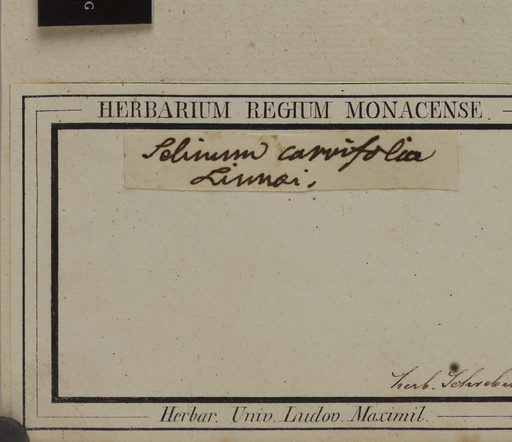 G
HERBARIUM REGIUM MONACENSE.
Selinum carvifolia
Linnæi.
herb. Schreber
Herbar. Univ. Ludov. Maximil.